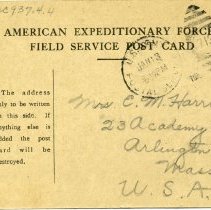 AMERICAN EXPEDITIONARY FORCE
FIELD SERVICE POST CARD
The address
only to be written
on this side. If
anything else is
added the post
card will be
destroyed.
Mrs. C. M. Harr
23 Academy
Arlington
Mass
U. S. A.